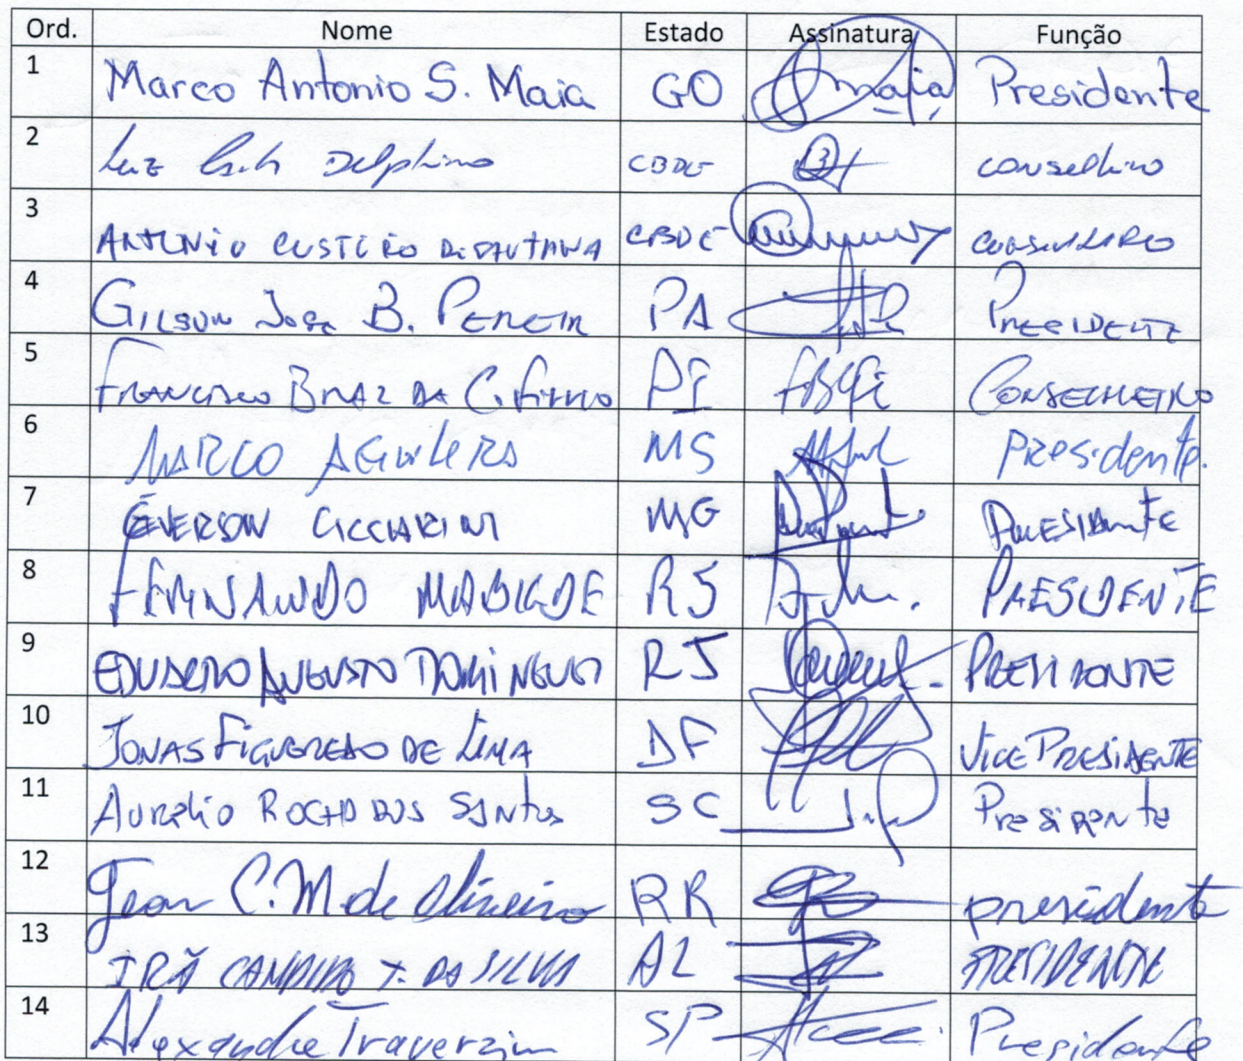 Ord. Nome Estado Assinatura Função
1 Marco Antonio S. Maia GO Presidente
2 Delphino CBDE conselhiro
3 ANTONIO CUSTODIO CBDE
4 GILSON José B. PEREIR PA PRESIDENTE
5 FRANCISCO BRAZ DA C. FILHO PI CONSELHEIRO
6 MARCO AGUILERA MS Presidente.
7 ÉVERSON CICCIARINI MG PRESIDENTE
8 FERNANDO RS PRESIDENTE
9 EDUARDO AUGUSTO DOMINGUES RJ PRESIDENTE
10 JONAS FIGUEREDO DE LIMA DF VICE PRESIDENTE
11 AURÉLIO ROCHA DOS SANTOS SC Presidente
12 Jean C. M. de Oliveira RR presidente
13 IRÃ CANDIDO DA SILVA AL PRESIDENTE
14 Alexandre SP Presidente